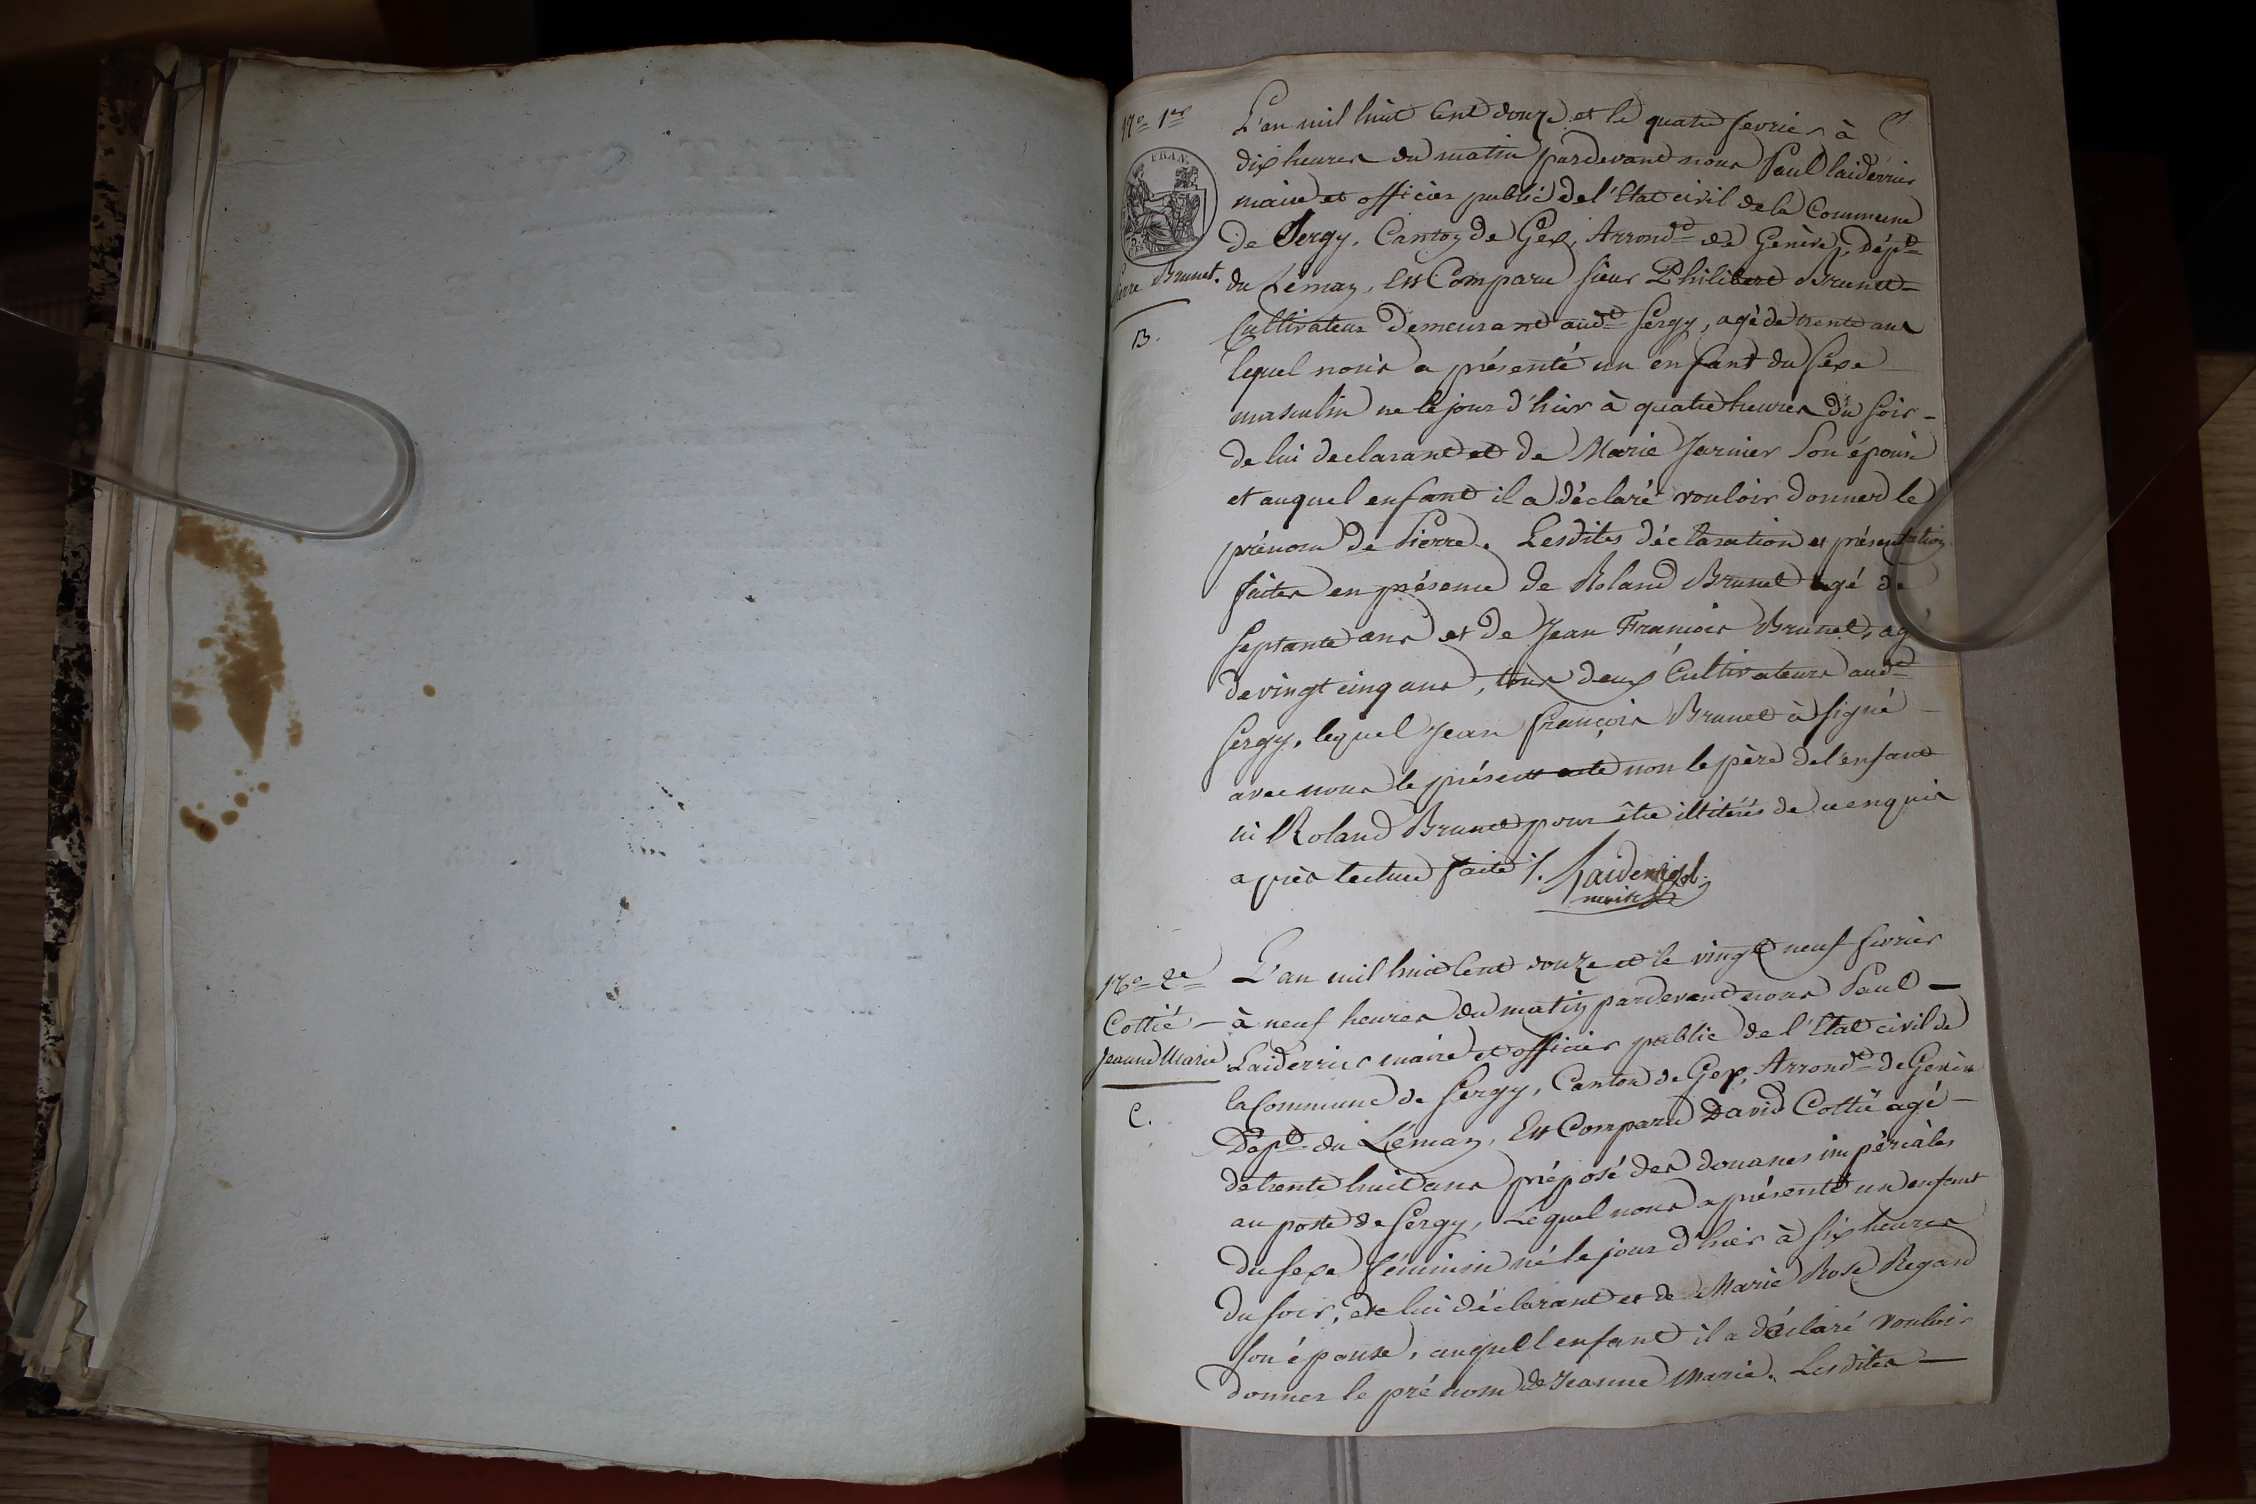 N.o 1er
L'an mil huit Cent douze et le quatre fevrier à
dix heures du matin pardevant nous Paul Laiderrier
maire et officier public de l'Etat civil de la Commune
de Sergy, Canton de Gex, Arrond.t de Genève, Dép.t
Pierre Brunet.
du Léman, Est Comparu sieur Philibert Brunet
Cultivateur demeurant aud.t Sergy, agé de trente ans
B.
lequel nous a présenté un enfant du sexe
masculin ne le jour d'hier à quatre heures du soir
de lui declarant et de Marie Jarnier Son épouse
et auquel enfant il a déclaré vouloir donner le
prénom de Pierre. Lesdites déclaration et présentation
faites en présence de Roland Brunet agé de
septante ans et de Jean Francois Brunet, agé
de vingt cinq ans, tous deux Cultivateurs aud.t
Sergy, lequel Jean françois Brunet à signé
avec nous le présent acte non le père de l'enfant
ni Roland Brunet pour être illitérés de ce enquis
après lecture faite ./.
Laiderrier
maire
N.o 2e
L'an mil huit Cent douze et le vingt neuf fevrier
Cottié
à neuf heures du matin pardevant nous Paul
Jeanne Marie
Laiderrier maire et officier public de l'Etat civil de
la Commune de Sergy, Canton de Gex, Arrond.t de Genève
C.
Dép.t du Léman, Est Comparu David Cottié agé
de trente huit ans préposé des douanes impériales
au poste de Sergy, Lequel nous a présenté un enfant
du sexe féminin né le jour d'hier à six heures
du soir, de lui déclarant et de Marie Rose Regard
son épouse, auquel enfant il a déclaré vouloir
donner le pré nom de Jeanne Marie. Lesdites
FRAN.